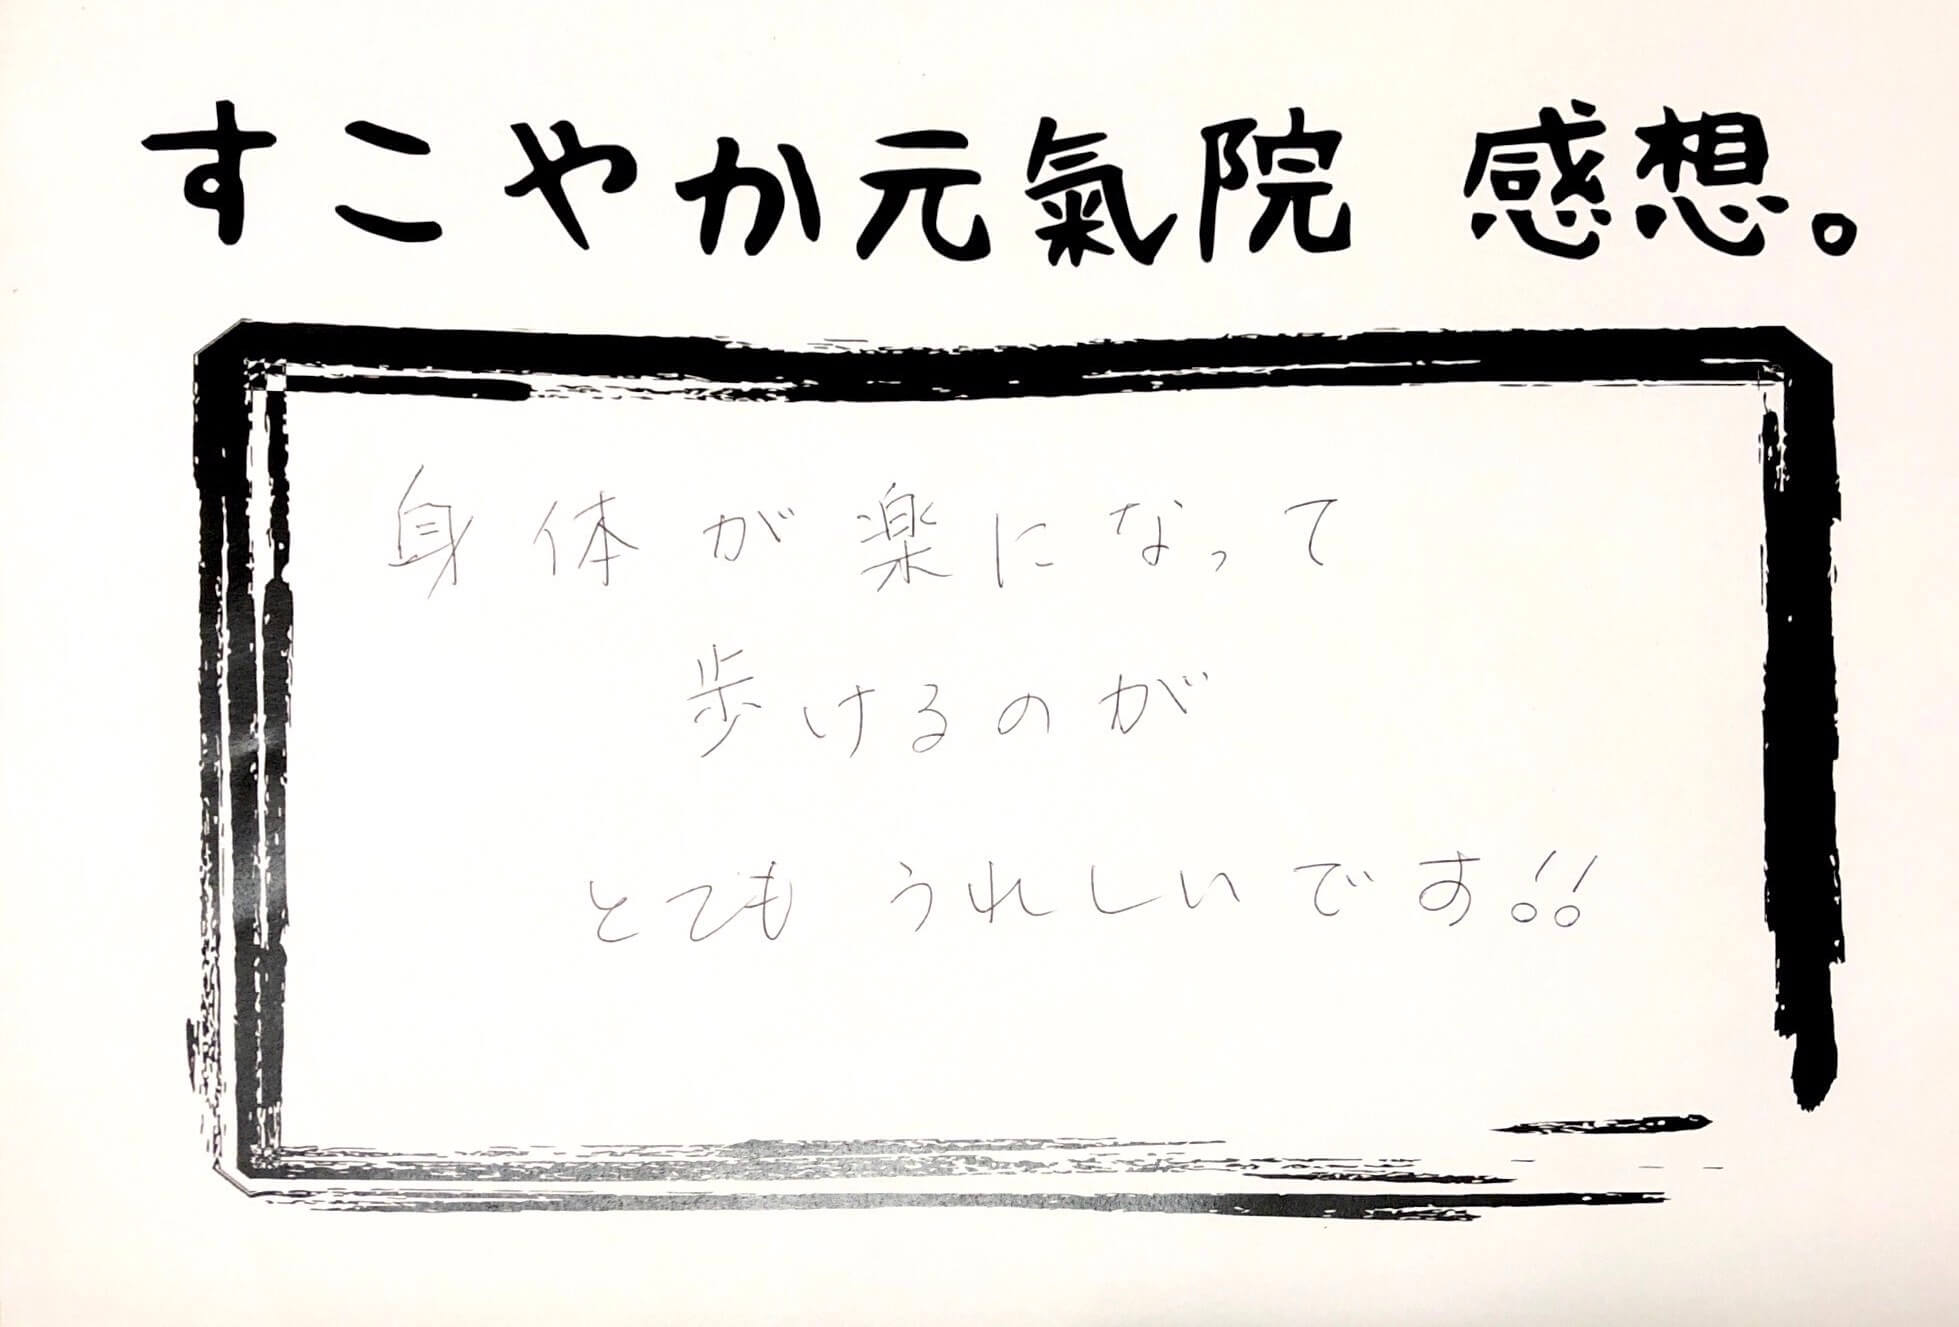 すこやか元氣院 感想。
身体が楽になって
歩けるのが
とてもうれしいです!!